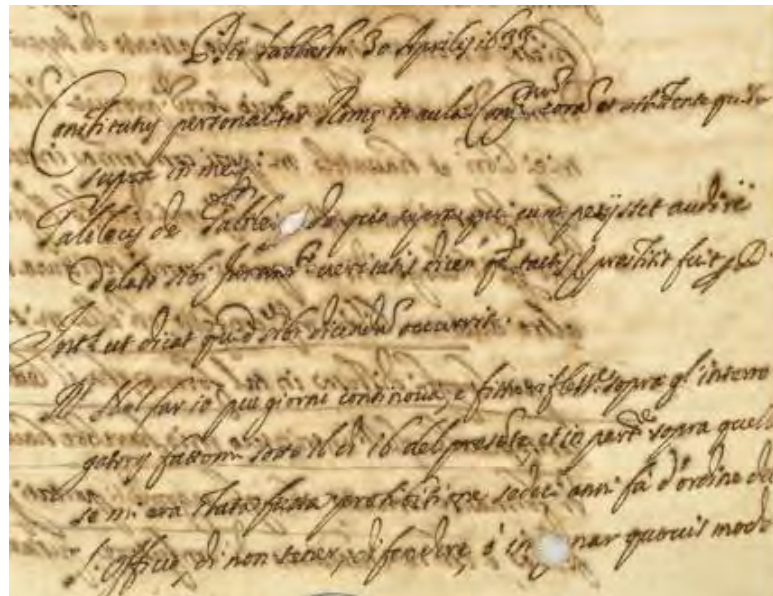 Die Sabbathi 30 Aprilis 1633.
Constitutus personaliter Romę in aula Congnum coram et assistente quibus
supra in mei
Galileus de Galileis de quo supra qui cum petijsset audiri
delato sibi Juramto veritatis dicen qd tactis prestitit fuit per D.
Intus ut dicat quid sibi dicendum occurrit.
Rt Nel far io più giorni continoua, e fissa rifletne sopra gl'interro
gatorij fattomi sotto il dì 16 del presente, et in partre sopra quello
se mi era stata fatta prohibitione sedeci anni fà d'ordine del
S. Officio, di non tener, difendere, ò in nar quouis modo